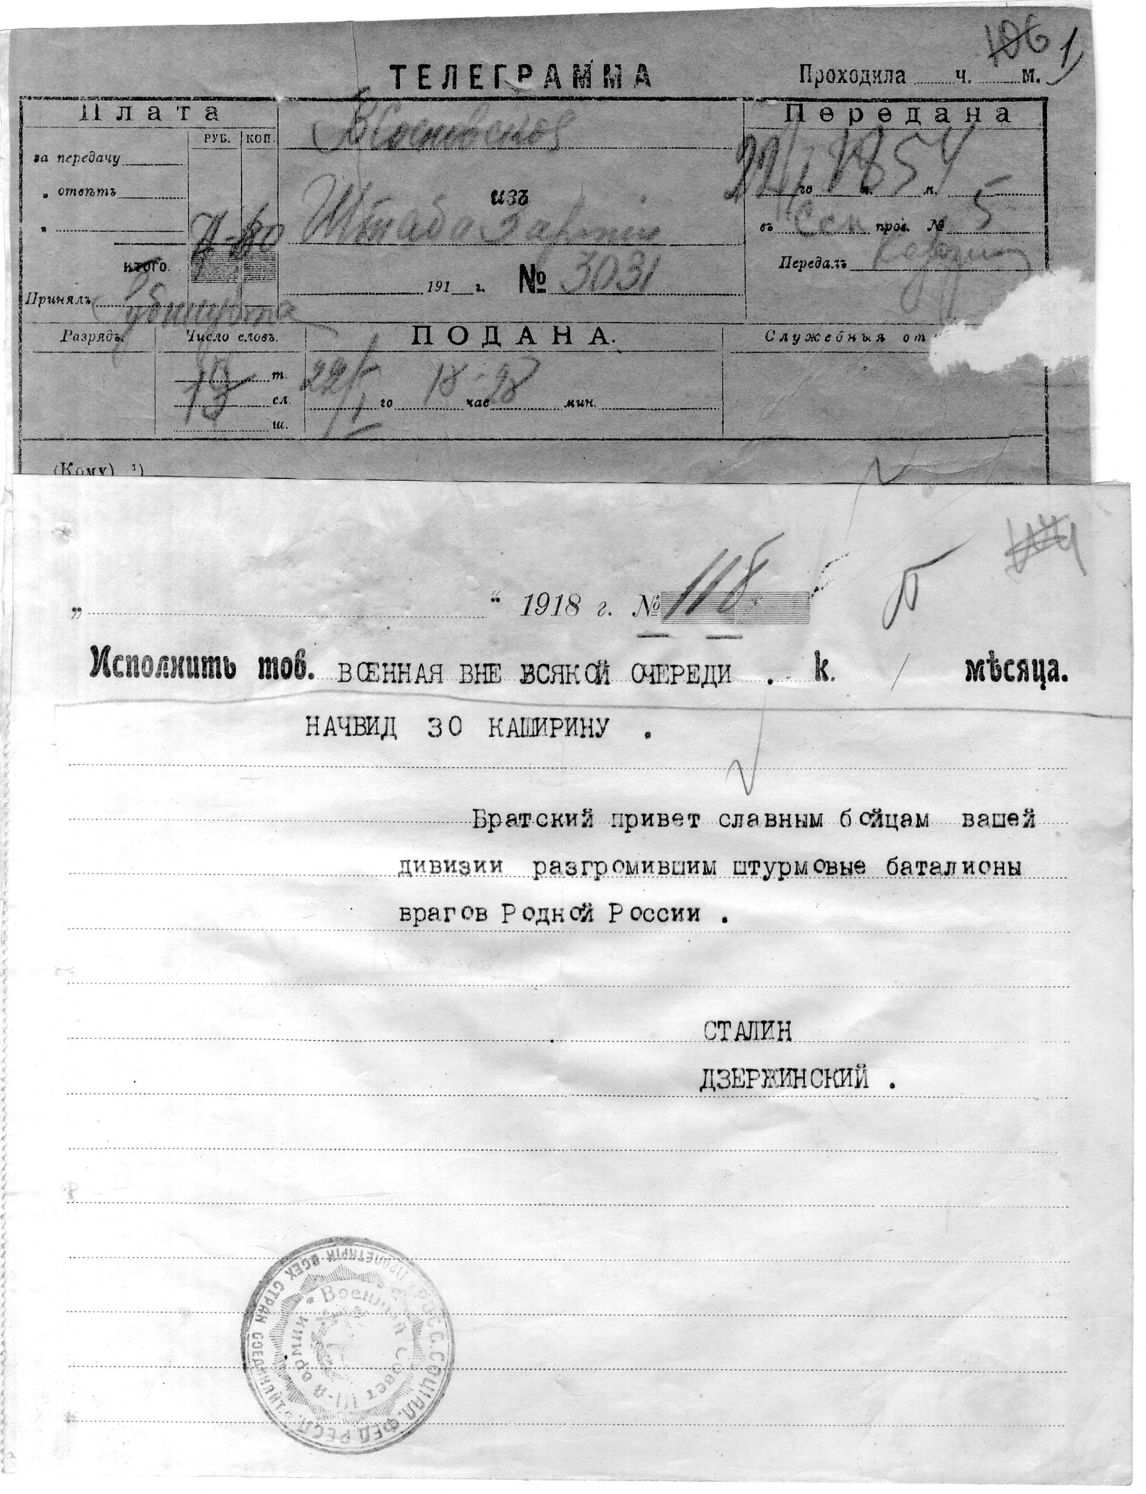 106 1
ТЕЛЕГРАММА Проходила ч. м.
Плата
РУБ. КОП.
за передачу
„ отвѣтъ
„
итого.
Принялъ
изъ
Штаба 3 армии
191 г. № 3031
Передана
22/I го 18 ч. 54 м.
въ пров. № 5
Передалъ
Разрядъ. Число словъ. ПОДАНА. Служебныя от
т.
сл.
ш.
22/I го 18-28 час мин.
(Кому) ¹)
„ “ 1918 г. № 118
Исполнить тов. ВОЕННАЯ ВНЕ ВСЯКОЙ ОЧЕРЕДИ . к. мѣсяца.
НАЧВИД 30 КАШИРИНУ .
Братский привет славным бойцам вашей
дивизии разгромившим штурмовые баталионы
врагов Родной России .
СТАЛИН
ДЗЕРЖИНСКИЙ .
РОСС. СОЦІАЛ. ФЕД. РЕСП. ПРОЛЕТАРІИ ВСЕХ СТРАН СОЕДИНЯЙТЕСЬ
* Военный Совет III-й армии